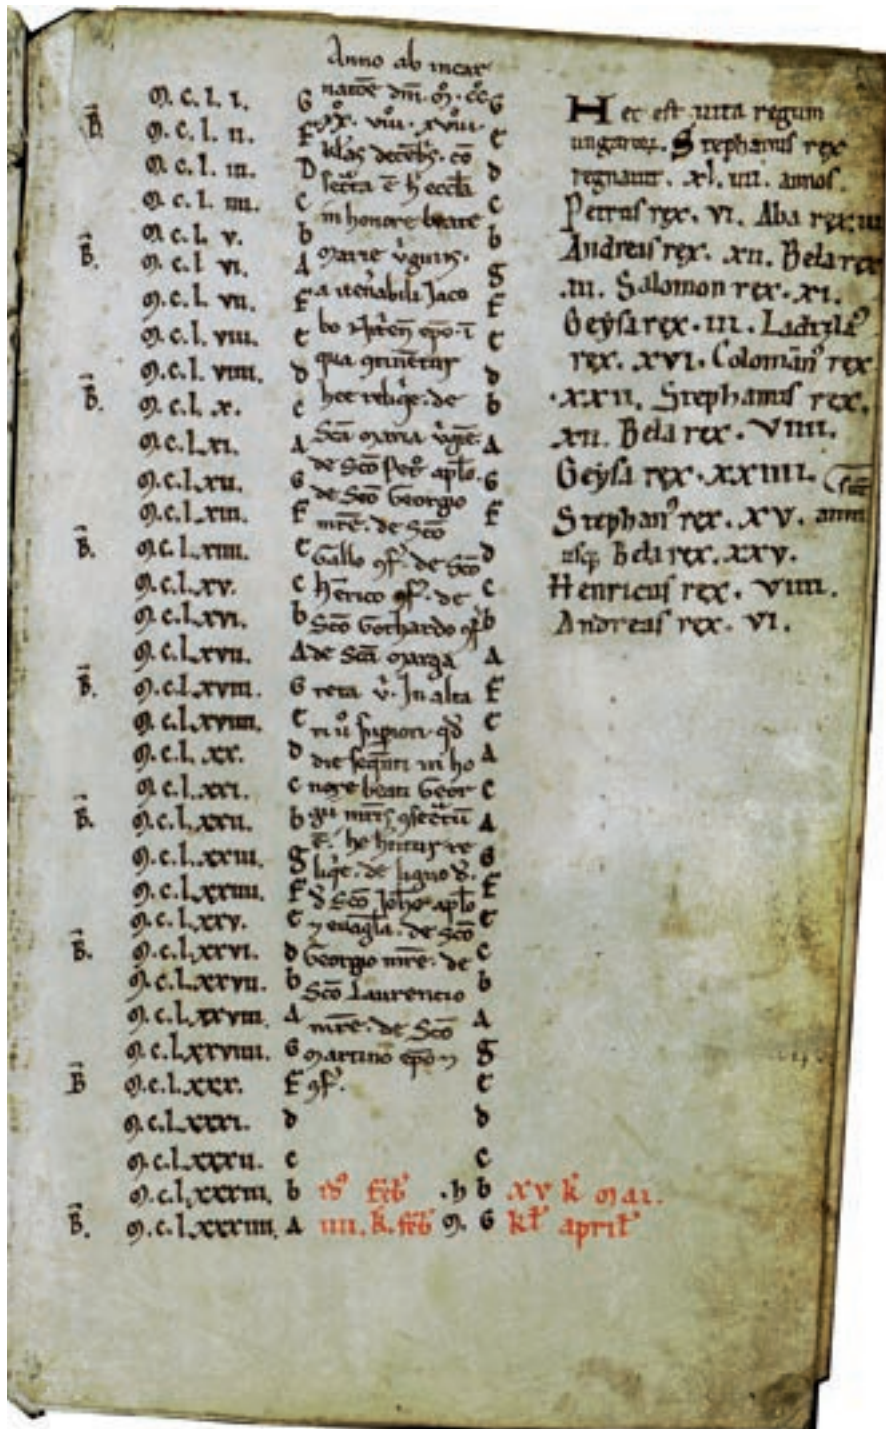 M.c.l.i. G
B M.c.l.ii. F
M.c.l.iii. D
M.c.l.iiii. c
M.c.l.v. b
B. M.c.l.vi. A
M.c.l.vii. F
M.c.l.viii. E
M.c.l.viiii. d
B. M.c.l.x. c
M.c.l.xi. A
M.c.l.xii. G
M.c.l.xiii. F
B. M.c.l.xiiii. E
M.c.l.xv. c
M.c.l.xvi. b
M.c.l.xvii. A
B. M.c.l.xviii. G
M.c.l.xviiii. E
M.c.l.xx. d
M.c.l.xxi. c
B. M.c.l.xxii. b
M.c.l.xxiii. g
M.c.l.xxiiii. F
M.c.l.xxv. E
B. M.c.l.xxvi. d
M.c.l.xxvii. b
M.c.l.xxviii. A
M.c.l.xxviiii. G
B M.c.l.xxx. F
M.c.l.xxxi. d
M.c.l.xxxii. c
M.c.l.xxxiii. b id' feb' .h b xv k mar.
B. M.c.l.xxxiiii. A iiii. k. feb' m. G kl' april'
Anno ab incar
natōe dm̄. M. cc
xviii. xviii.
klas decēbs. cō
secͣta ē h eccla
in honore beate
Marie v̓ginis.
a uen̓abili Jaco
bo epō. ī
qua ꝯtinētur
hee reliqe. de
Scā Maria v̓gie.
de Scō Petͦ aplo.
de Scō Georgio
mr̄e. de Scō
Gallo ꝯf̓. de Scō
hērico ꝯf̓. de
Scō Gothardo ꝯf̓
de Scā Marga
reta v̓. In alta
ri ů supiori qd
die seqnti in ho
nore beati Geor
gii mr̄is ꝯsecͣtū
ē. hē re
liqe. de ligno d.
d Scō Johē aplo
⁊ evagla. de Scō
Georgio mr̄e. de
Scō Laurencio
mr̄e. de Scō
Martino epō ⁊
ꝯf̓.
G
E
d
c
b
g
F
E
d
b
A
G
F
d
c
b
A
F
E
A
C
A
G
F
E
C
b
A
g
E
d
c
Hec est uita regum
ungaroꝝ. Stephanus rex
regnauit. xl.iii. annos.
Petrus rex. vi. Aba rex. iii
Andreas rex. xii. Bela rex
.iii. Salomon rex. xi.
Geysa rex. iii. Ladizla᾿
rex. xvi. Coloman᾿ rex
.xxii. Stephanus rex.
xii. Bela rex. viiii.
Geysa rex. xxiiii. sūt
Stephan᾿ rex. xv. anni
usq Bela rex. xxv.
Henricus rex. viiii.
Andreas rex. vi.